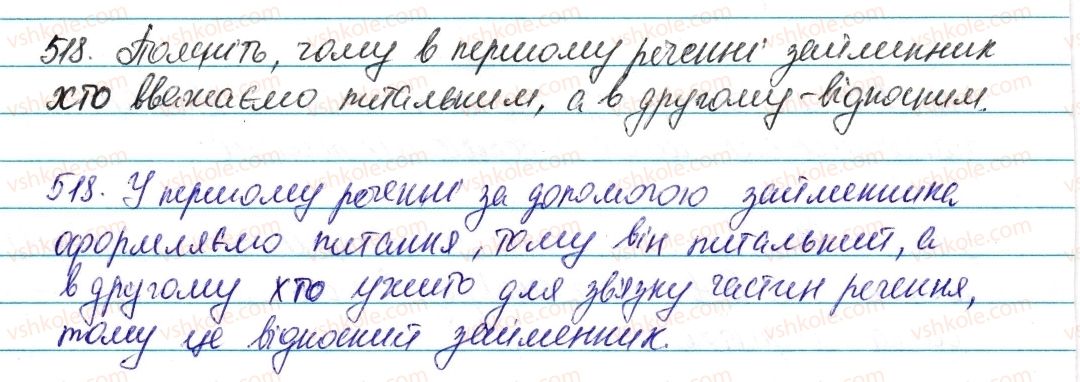 518. Поясніть, чому в першому реченні займенник
хто вважаємо питальним, а в другому - відносним.
518. У першому реченні за допомогою займенника
оформляємо питання, тому він питальний, а
в другому хто ужито для зв'язку частин речення,
тому це відносний займенник.